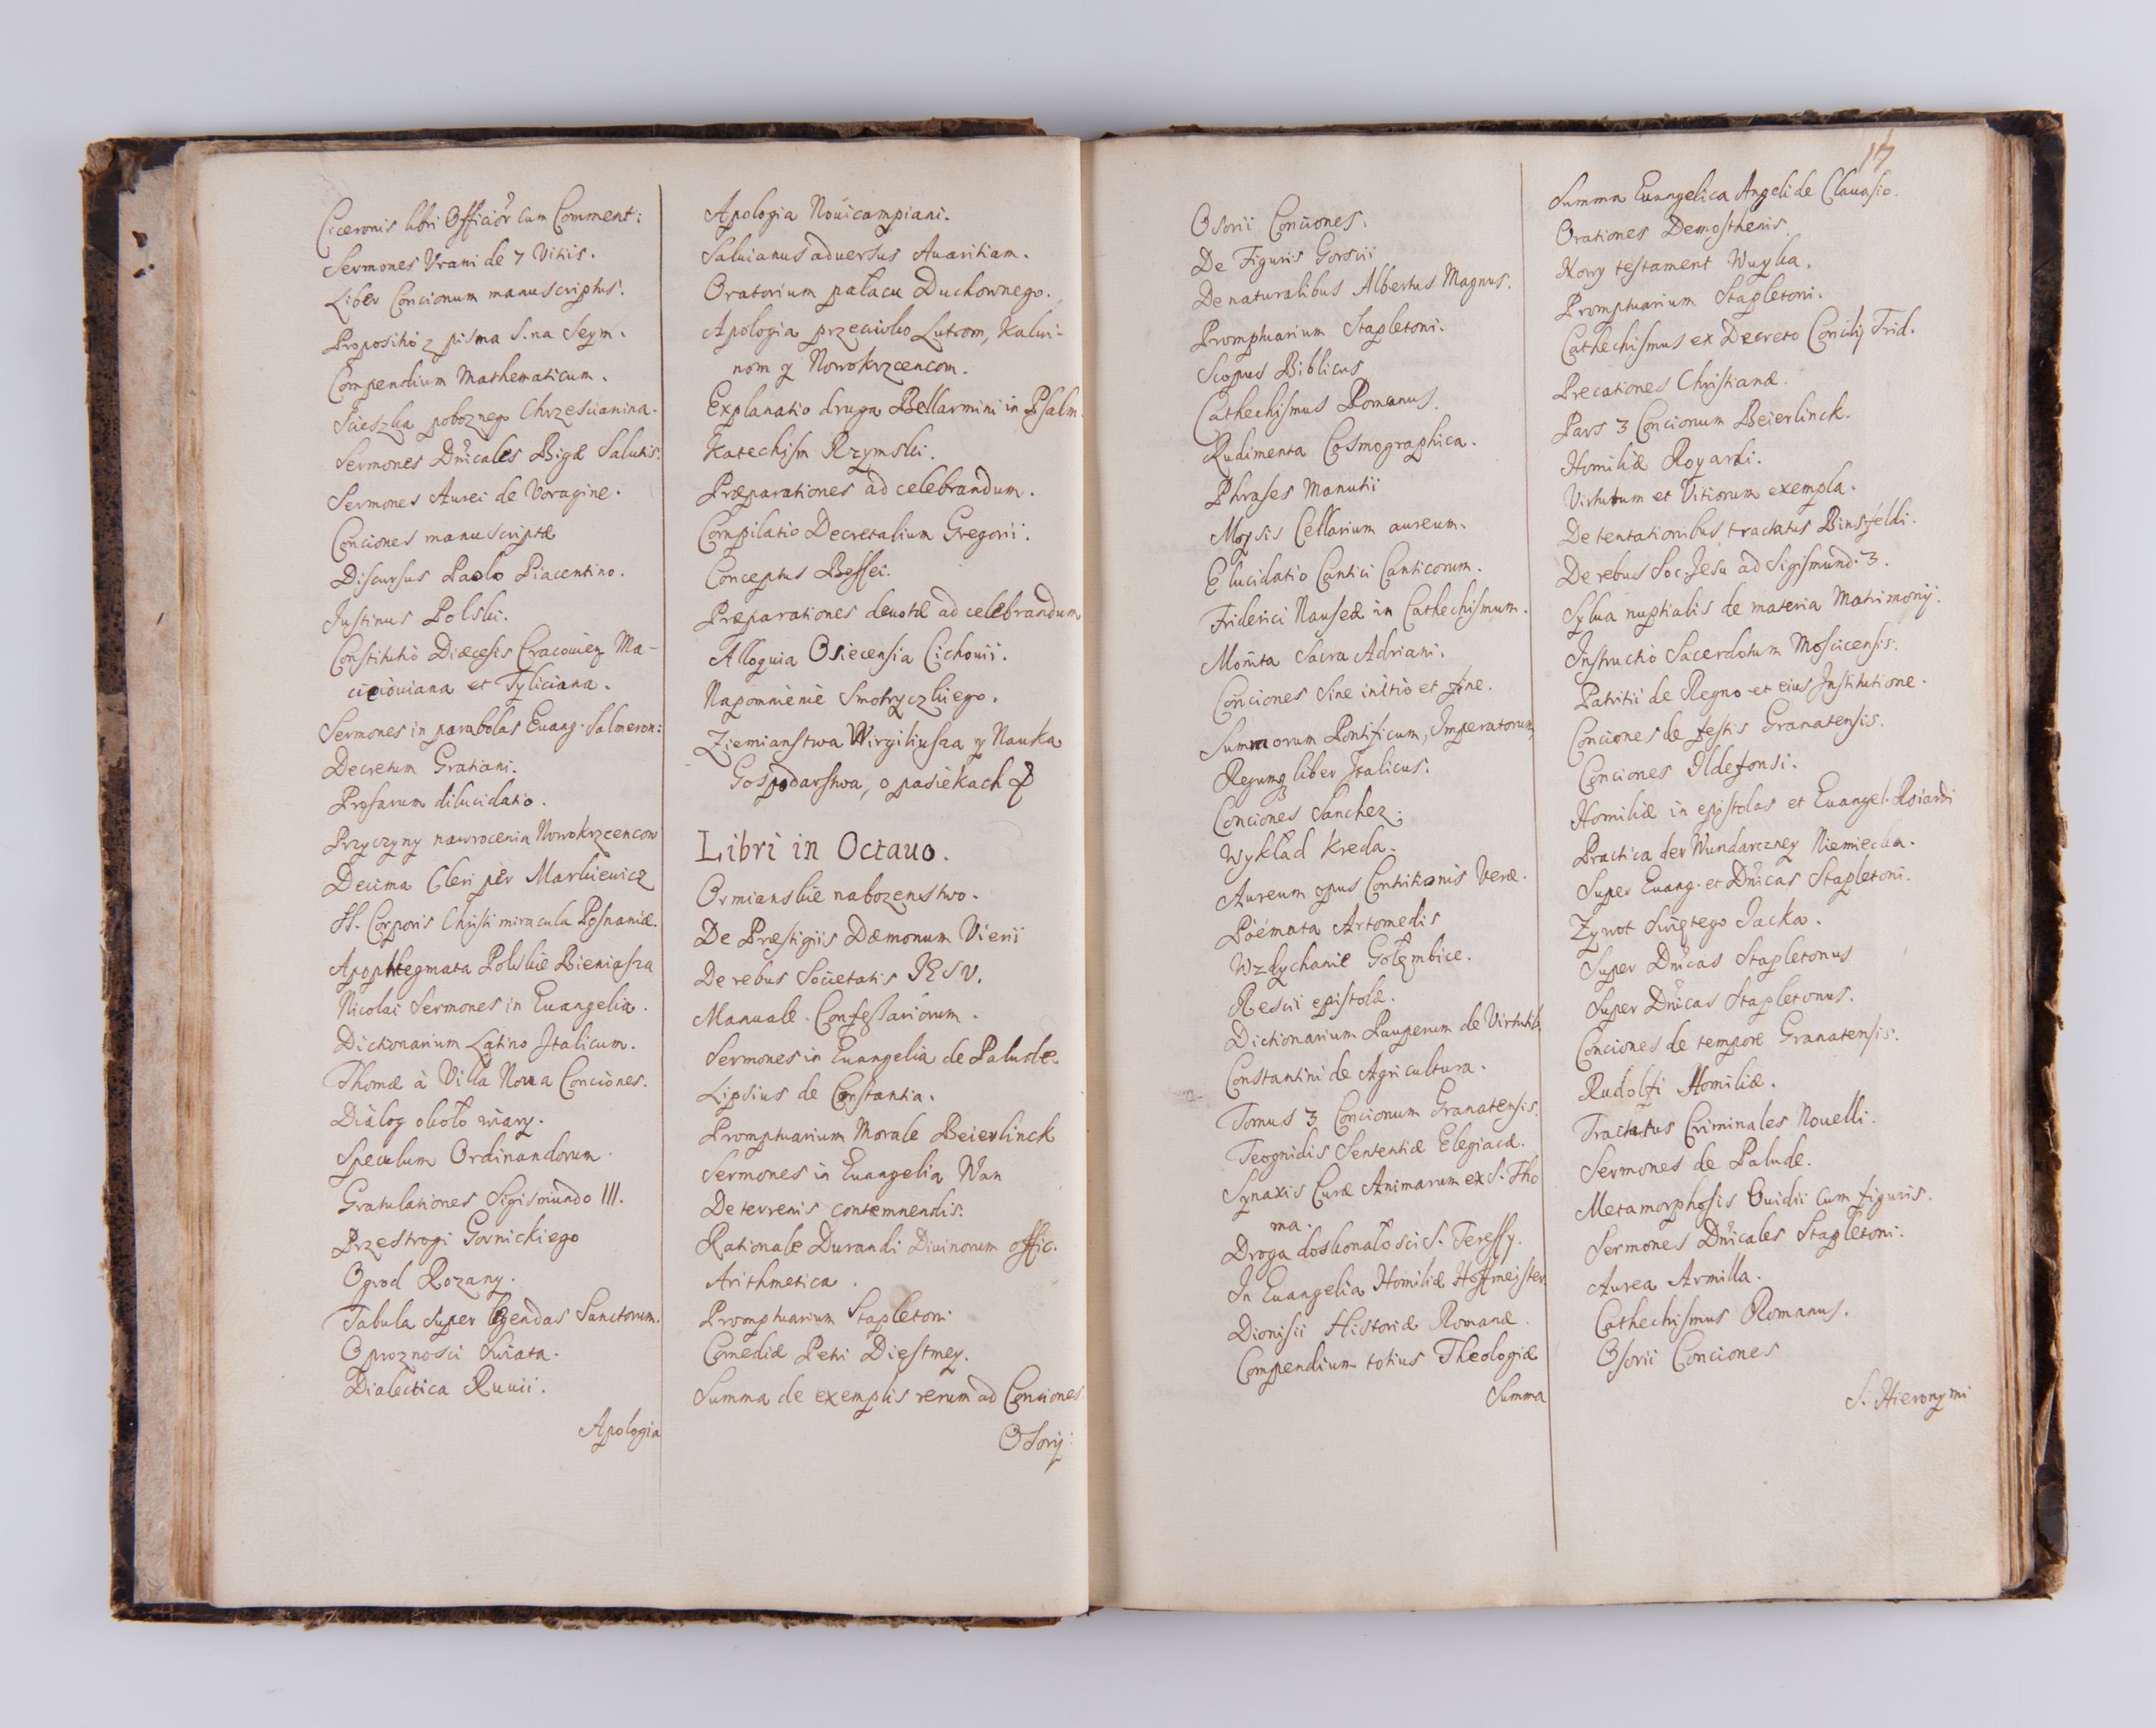 Ciceronis libri Officior̃ cum Comment:
Sermones Vrani de 7 Vitiis.
Liber Concionum manuscriptus.
Propositio z pisma S. na Seym.
Compendium Mathematicum.
Scieszka poboznego Chrzescianina.
Sermones Dn̄icales Bigæ Salutis.
Sermones Aurei de Voragine.
Conciones manuscriptæ
Discursus Paolo Piacentino.
Justinus Polski.
Constitutiō Diæcesis Cracouieñ Ma-
cieiouiana et Tyliciana.
Sermones in parabolas Euang. Salmeron:
Decretum Gratiani.
Prosarum dilucidatio.
Przyczyny nawrocenia Nowokrzcencow
Decima Cleri per Markiewicz
SS. Corporis Christi miracula Posnaniæ.
Apophtegmata Polskie Bieniasza
Nicolai Sermones in Euangelia.
Dictionarium Latino Italicum.
Thomæ à Villa Noua Conciones.
Dialog około wiary.
Speculum Ordinandorum.
Gratulationes Sigismundo III.
Przestrogi Gornickiego
Ogrod Rozany.
Tabula super legendas Sanctorum.
O proznosci swiata.
Dialectica Ruuii.
Apologia
Apologia Nouicampiani.
Saluianus aduersus Auaritiam.
Oratorium pałacu Duchownego.
Apologia przeciwko Lutrom, Kalwi-
nom y Nowokrzcencom.
Explanatio druga Bellarmini in Psalm.
Katechism Rzymski.
Præparationes ad celebrandum.
Compilatio Decretalium Gregorii.
Conceptus Bessei.
Præparationes deuotæ ad celebrandum
Alloquia Osiecensia Cichouii.
Napomnienie Smotryczkiego.
Ziemianstwa Wirgiliusza y Nauka
Gospodarstwa, o pasiekach &
Libri in Octauo.
Ormianskie nabozenstwo.
De Præstigiis Dæmonum Vierii
De rebus Societatis IESV.
Manuale Confessariorum.
Sermones in Euangelia de Palude.
Lipsius de Constantia.
Promptuarium Morale Beierlinck
Sermones in Euangelia Wan
De terrenis contemnendis.
Rationale Durandi Diuinorum offic.
Arithmetica.
Promptuarium Stapletoni
Comediæ Petri Diestmey.
Summa de exemplis rerum ad Conciones
Osorij
17
Osorii Conciones.
De Figuris Gorscii
De naturalibus Albertus Magnus.
Promptuarium Stapletoni.
Scopus Biblicus
Cathechismus Romanus.
Rudimenta Cosmographica.
Phrases Manutii
Moysis Cellarium aureum.
Elucidatio Cantici Canticorum.
Friderici Nauseæ in Cathechismum.
Monita Sacra Adriani.
Conciones sine initio et fine.
Summorum Pontificum, Imperatorum,
Regumq liber Italicus.
Conciones Sanchez.
Wykład Kreda.
Aureum opus Contritionis Veræ.
Poémata Artomedis
Wzdychanie Gołębice.
Rescii epistolæ.
Dictionarium Pauperum de Virtutib
Constantini de Agricultura.
Tomus 3 Concionum Granatensis.
Teognidis Sententiæ Elegiacæ.
Synaxis Curæ Animarum ex S. Tho
ma.
Droga doskonałosci S. Teressy.
In Euangelia Homiliæ Hoffmeister
Dionisii Historiæ Romanæ.
Compendium totius Theologiæ
Summa
Summa Euangelica Angeli de Clauasio.
Orationes Demosthenis.
Nowy testament Wuyka.
Promptuarium Stapletoni.
Cathechismus ex Decreto Concilij Trid.
Precationes Christianæ.
Pars 3 Concionum Beierlinck.
Homiliæ Royardi.
Virtutum et Vitiorum exempla.
De tentationibus tractatus Binsfeldi.
De rebus Soc. Jesu ad Sigismund. 3.
Sylua nuptialis de materia Matrimonij.
Instructio Sacerdotum Moscicensis.
Patritii de Regno et eius Institutione.
Conciones de festis Granatensis.
Conciones Ildefonsi.
Homiliæ in epistolas et Euangel. Roiardi
Practica der Wundarczney Niemiecka.
Super Euang. et Dn̄icas Stapletoni.
Zywot Swiętego Jacka.
Super Dn̄icas Stapletonus
Super Dn̄icas Stapletonus.
Conciones de tempore Granatensis.
Rudolfi Homiliæ.
Tractatus Criminales Nouelli.
Sermones de Palude.
Metamorphosis Ouidii cum figuris.
Sermones Dn̄icales Stapletoni.
Aurea Armilla.
Cathechismus Romanus.
Osorii Conciones
S. Hieronymi